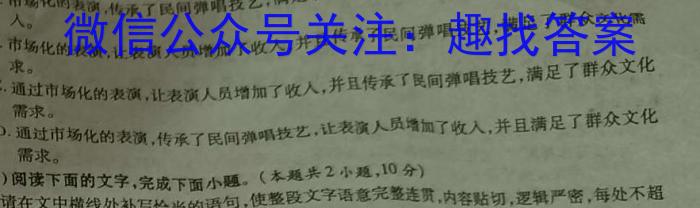 市场化的表演,传承了民间弹唱技艺,满足了群众文化需
人。
微信公众号关注：趣找答案
市场化的表演,让表演人员增加了收入,并且传承了民间弹唱技艺,满足了群众文化需
求。
.通过市场化的表演,让表演人员增加了收入,并且传承了民间弹唱技艺,满足了群众文化
需求。
.通过市场化的表演,传承了民间弹唱技艺,让表演人员增加了收入,并且满足了群众文化
需求。
)阅读下面的文字,完成下面小题。(本题共2小题,10分)
请在文中横线处补写恰当的语句,使整段文字语意完整连贯,内容贴切,逻辑严密,每处不超